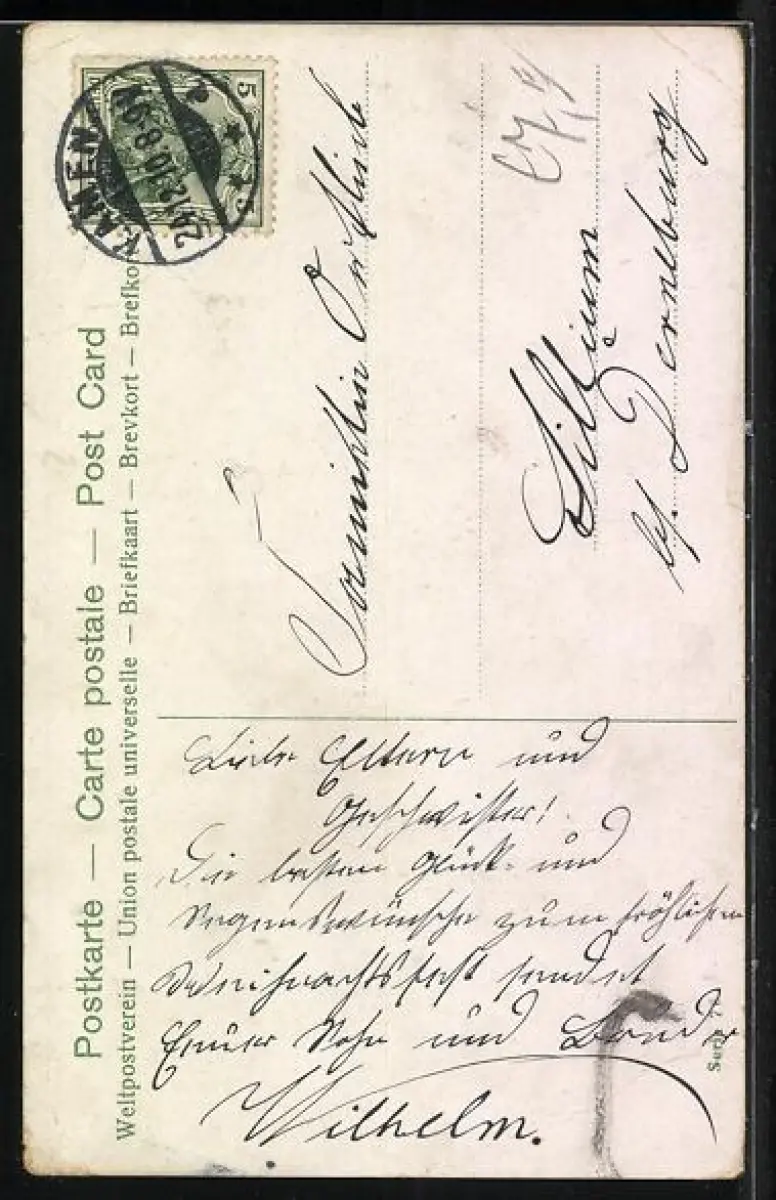 Postkarte — Carte postale — Post Card
Weltpostverein — Union postale universelle — Briefkaart — Brevkort — Brefko
5
KAMEN
24.12.10.8-9N
Familie
Sillium
b/ Derneburg
Liebe Eltern und
Geschwister!
Die besten Glück- und
Segenswünsche zum fröhlichen
Weihnachtsfest sendet
Euer Sohn und Bruder
Wilhelm.